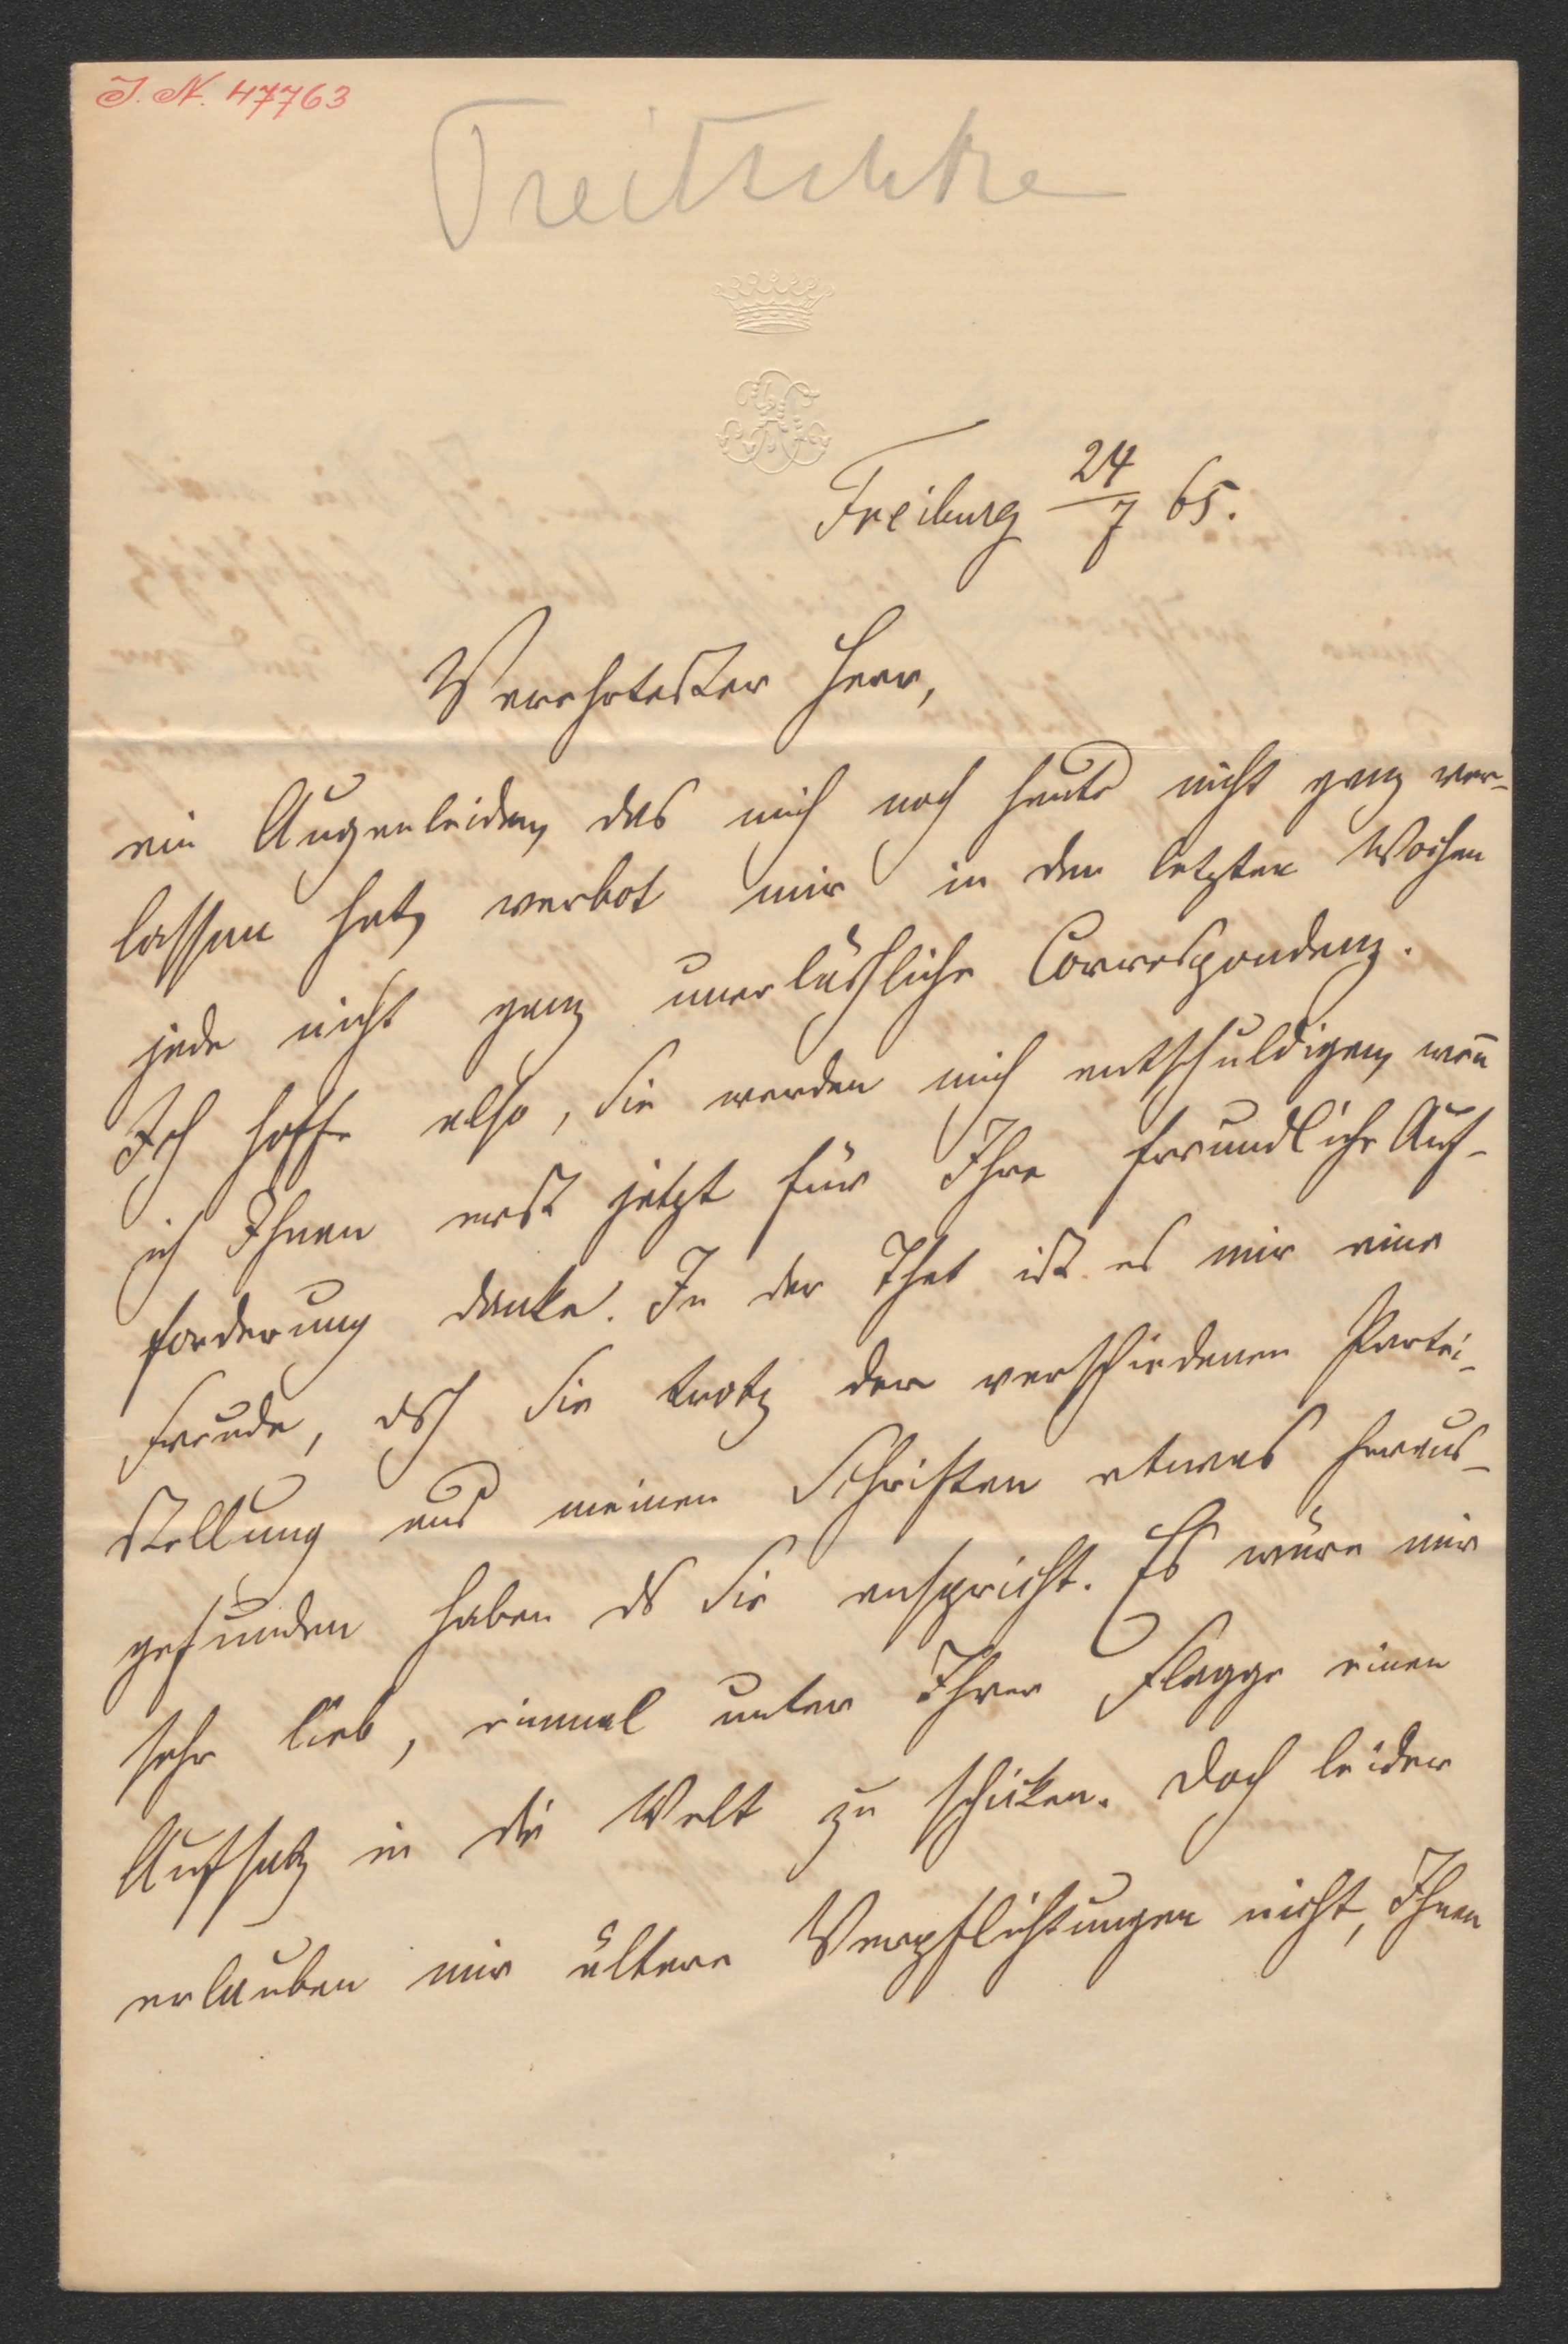 I. N. 47763
Treitschke
Freiburg 24/7 65.
Verehrtester Herr,
ein Augenleiden, das mich noch heute nicht ganz ver-
lassen hat, verbot mir in den letzten Wochen
jede nicht ganz unerläßliche Correspondenz.
Ich hoffe also, Sie werden mich entschuldigen, wen̄
ich Ihnen erst jetzt für Ihre freundliche Auf-
forderung danke. In der That ist es mir eine
Freude, dß Sie trotz der verschiedenen Partei-
stellung aus meinen Schriften etwas heraus-
gefunden haben ds Sie anspricht. Es wäre mir
sehr lieb, einmal unter Ihrer Flagge einen
Aufsatz in die Welt zu schicken. Doch leider
erlauben mir ältere Verpflichtungen nicht, Ihnen